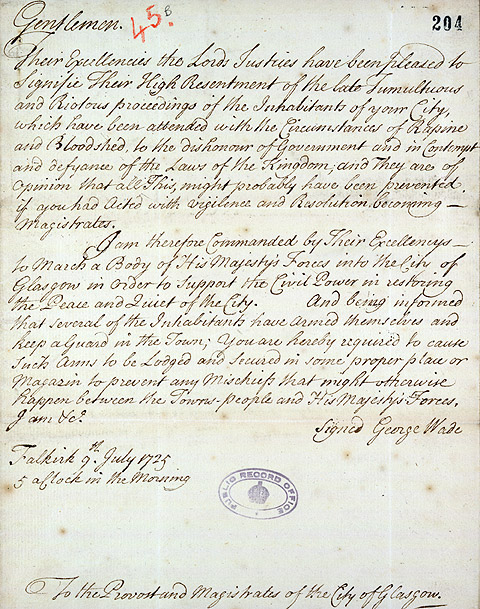 Gentlemen.
45 B
204
Their Excellencies the Lord Justices have been pleased to
Signifie Their High Resentment of the late Tumultuous
and Riotous proceedings of the Inhabitants of your City,
which have been attended with the Circumstances of Rapine
and Bloodshed, to the dishonour of Government and in Contempt
and defyance of the Laws of the Kingdom; and They are of
Opinion that all This, might probably have been prevented,
if you had Acted with vigilence and Resolution becoming –
Magistrates.
I am therefore Commanded by Their Excellencys –
to March a Body of His Majesty's Forces into the City of
Glasgow in order to Support the Civil Power in restoring
the Peace and Quiet of the City. And being informed
that several of the Inhabitants have Armed themselves and
keep a Guard in the Town; You are hereby required to cause
Such Arms to be Lodged and secured in some proper place or
Magazin to prevent any Mischief that might otherwise
happen between the Towns-people and His Majestys Forces.
I am &c.
Signed George Wade
Falkirk 9th July 1725
5 a Clock in the Morning
PUBLIC RECORD OFFICE
To the Provost and Magistrates of the City of Glasgow.